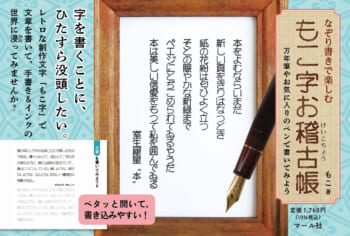 なぞり書きで楽しむ
もこ字お稽古帳
けいこちょう
万年筆やお気に入りのペンで書いてみよう
もこ 著
定価1,760円
(10%税込)
マール社
本をよむならいまだ
新しい頁をきりはなつとき
紙の花粉は匂ひよく立つ
そとの賑やかな新緑まで
ペエジにとぢこめられてゐるやうだ
本は美しい信愛をもつて私を囲んでゐる
室生犀星“本”
字を書くことに、
ひたすら没頭したい。
レトロな創作文字“もこ字”で
文章を書いて、手書き&インクの
世界に浸ってみませんか?
ペタッと開いて、
書き込みやすい!